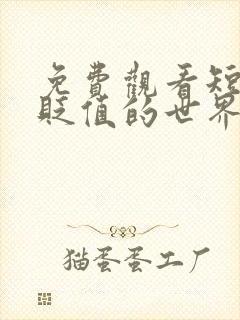 免費觀看短
貶值的世界
猫蛋蛋工厂